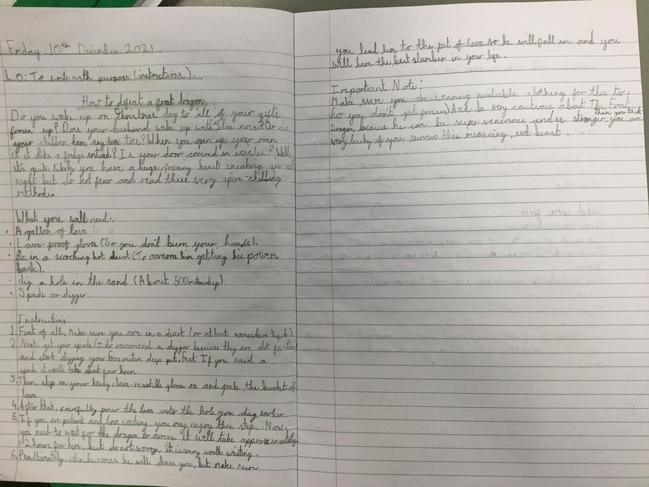 Friday 10th December 2021
L.O: To write with purpose (instructions).
How to defeat a frost dragon
Do you wake up on Christmas day to all of your gifts
frozen up? Does your husband wake up with blue nose? Or do
your children have icy toes? When you open up your oven
is it like a fridge instead? Is your door covered in icicles? Well,
it's quite likely you have a huge freezing beast sneaking at
night but do not fear and read these very spine-chilling
methods.
What you will need:
• A gallon of lava
• Lava-proof gloves (So you don't burn your hands).
• Be in a scorching hot desert (To overcome him getting his power
back).
• dig a hole in the sand (About 500 metres deep)
• Spade or digger.
Instructions
1. First of all, make sure you are in a desert (or at least somewhere tepid).
2. Next, get your spade (I'd recommend a digger because they are alot faster)
and start digging your 500 metre deep pit. Fact If you used a
spade it would take about four hours.
3. Then slip on your trusty, lava-resistible gloves on and grab the bucket of
lava.
4. After that, carefully pour the lava into the hole you dug earlier
5. If you are patient and love waiting, you may enjoy this step. Now,
you need to wait for the dragon to arrive it will take approximately
1-2 hours for him, but do not worry it is very worth waiting.
6. when he comes he will chase you, but make sure
you lead him to the pit of lava so he will fall in and you
will have the best slumber in your life.
Important Note:
Make sure you are wearing suitable clothing for this to,
so you don't get frozen! And be very cautious about The Frost
Dragon because he can be super venomous and is stronger than you think you are
very lucky if you survive this menacing, evil beast.